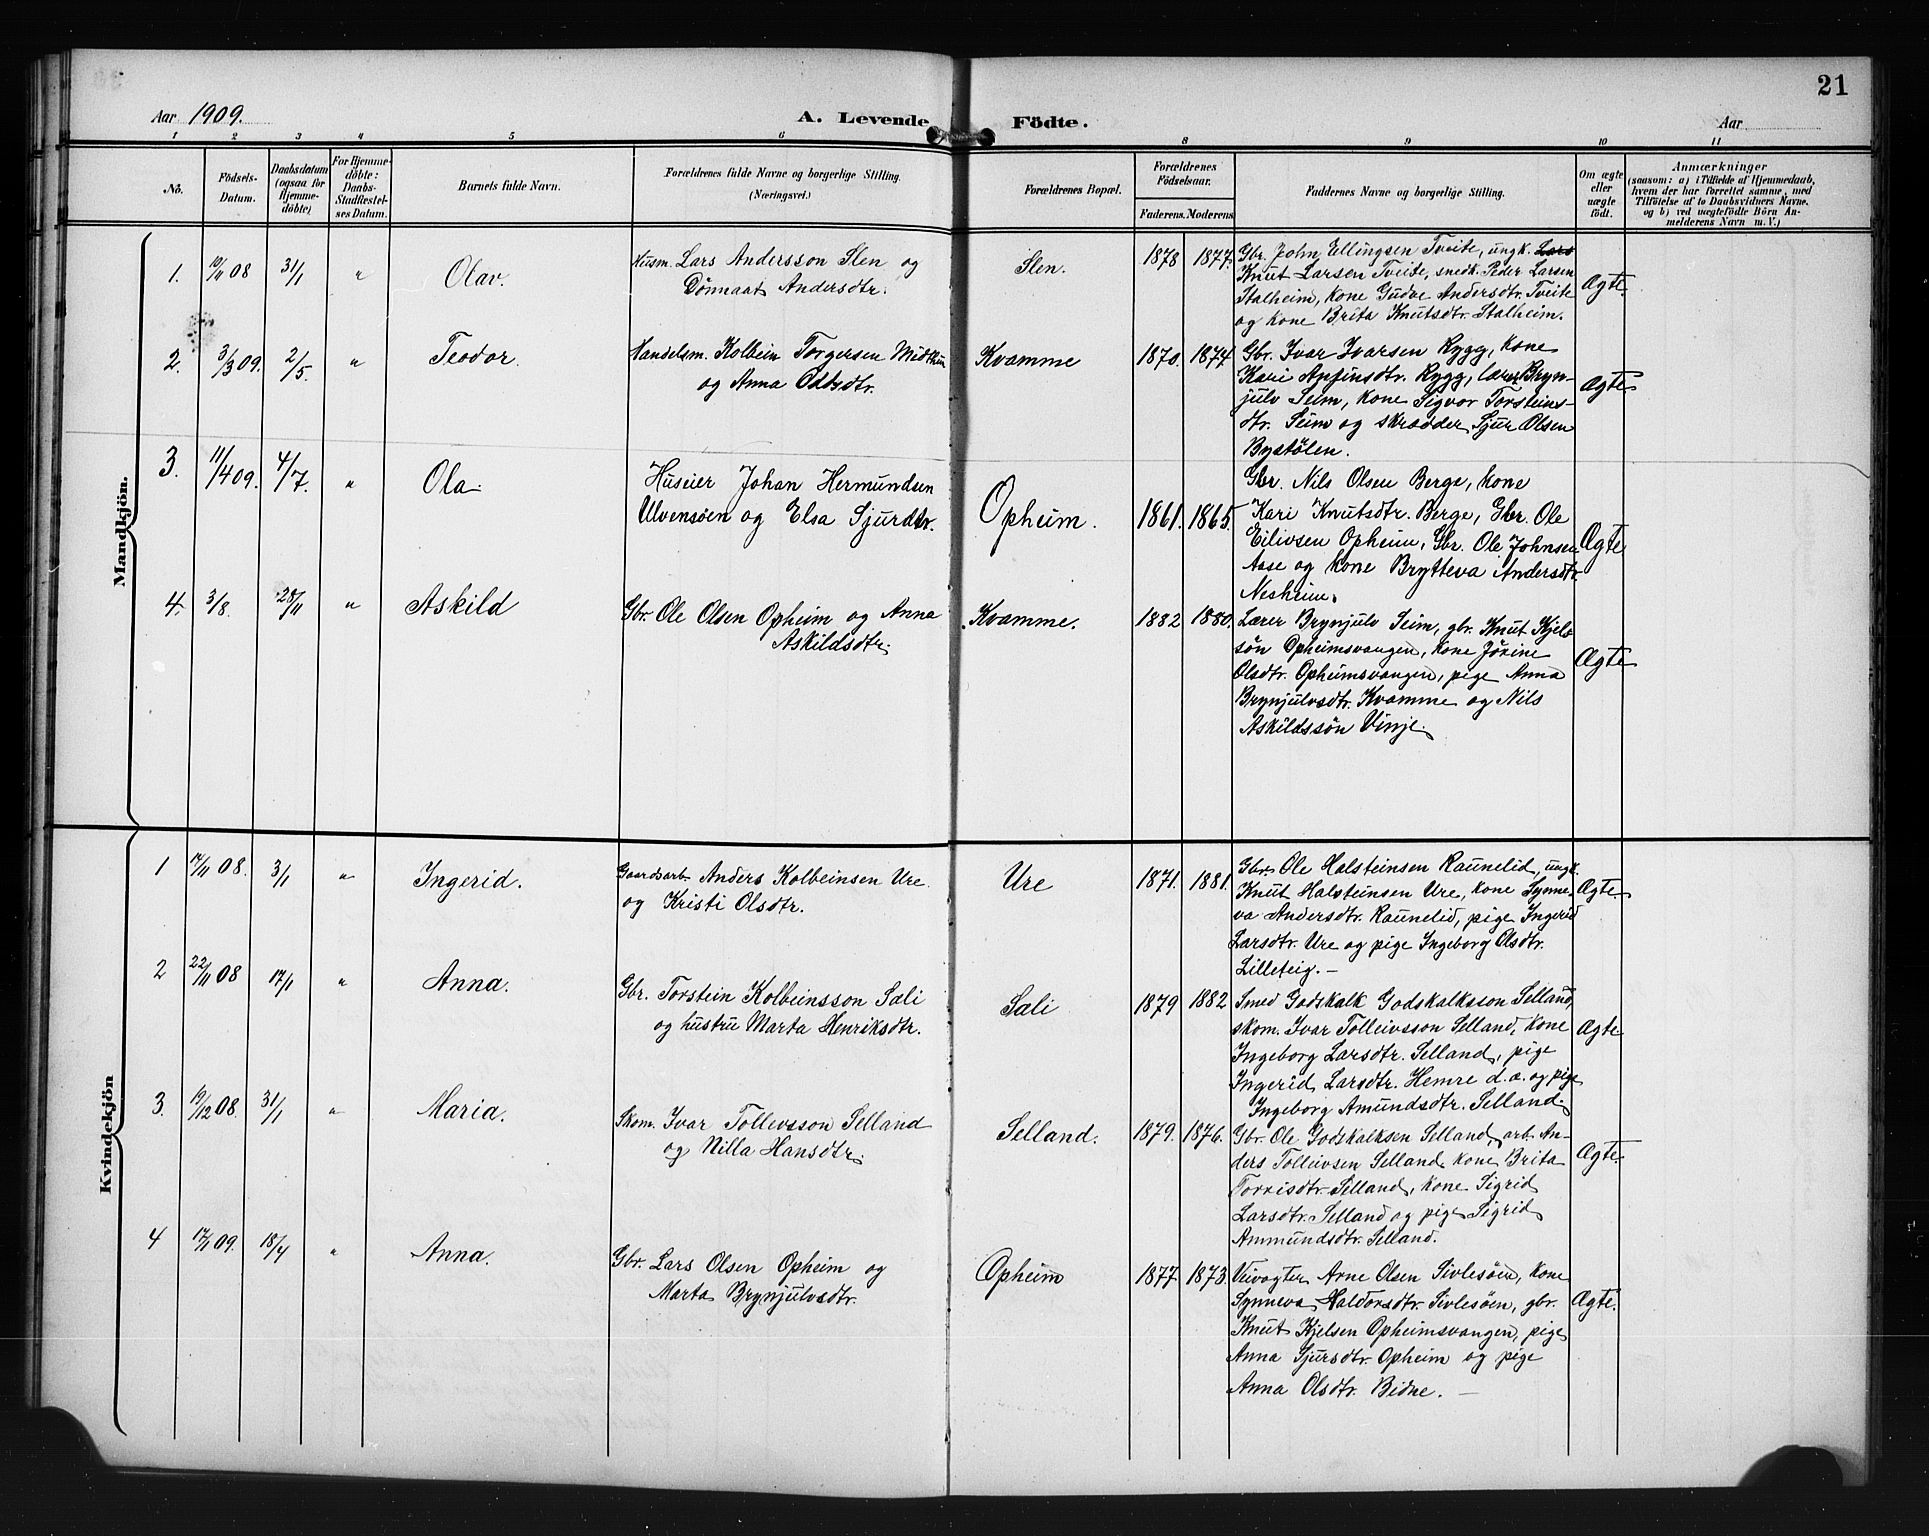 21
Aar 1909.
A. Levende Födte.
Aar
1 2 3 4 5 6 8 9 10 11
No.
Födsels-
Datum.
Daabsdatum
(ogsaa for
Hjemme-
döbte)
For Hjemme-
döbte:
Daabs-
Stadfæstel-
ses Datum.
Barnets fulde Navn.
Forældrenes fulde Navne og borgerlige Stilling.
(Næringsvei.)
Forældrenes Bopæl.
Forældrenes
Födselsaar.
Faderens. Moderens
Faddernes Navne og borgerlige Stilling.
Om ægte
eller
uægte
födt.
Anmærkninger
(saasom: a) i Tilfælde af Hjemmedaab,
hvem der har forrettet samme, med
Tilföielse af to Daabsvidners Navne.
og b) ved uægtefödte Börn An-
melderens Navn m. V.)
Mandkjön.
1. 10/11 08 31/1 " Olav.
Husm. Lars Andersson Slen og
Dönnaat Andersdtr.
Slen. 1878 1877.
Gbr. John Ellingsen Tveite, ungk. Lars
Knut Larsen Tveite, snedk. Peder Larsen
Stalheim, kone Gudve Andersdtr. Tveite
og kone Brita Knutsdtr. Stalheim.
Ægte.
2. 3/3 09. 2/5. " Teodor.
Handelsm. Kolbein Torgersen Midthun
og Anna Oddsdtr.
Kvamme 1870. 1874.
Gbr. Ivar Ivarsen Rygg, kone
Kari Anfinsdtr. Rygg, lærer Bryn-
julv Seim, kone Sigvor Torsteins-
dtr. Seim og skrædder Sjur Olsen
Bystölen.
Ægte
3. 11/4 09. 4/7. " Ola.
Huseier Johan Hermundsen
Ulvensöen og Elsa Sjurdtr.
Opheim. 1861. 1865.
Gbr. Nils Olsen Berge, kone
Kari Knutsdtr. Berge, Gbr. Ole
Eilivsen Opheim, Gbr. Ole Johnsen
Aase og kone Brytteva Andersdtr.
Nesheim.
Ægte
4. 3/8. 28/11 " Askild
Gbr. Ole Olsen Opheim og Anna
Askildsdtr.
Kvamme. 1882 1880.
Lærer Brynjulv Seim, gbr. Knut Kjels-
sön Opheimsvangen, kone Jörine
Olsdtr. Opheimsvangen, pige Anna
Brynjulvsdtr. Kvamme og Nils
Askildssön Vinje.
Ægte
Kvindekjön
1 17/11 08. 3/1 " Ingerid.
Gaardsarb. Anders Kolbeinsen Ure
og Kristi Olsdtr.
Ure 1871. 1881.
Gbr. Ole Halsteinsen Raunelid, ungk.
Knut Halsteinsen Ure, kone Synne-
va Andersdtr. Raunelid, pige Ingerid
Larsdtr. Ure og pige Ingeborg Olsdtr.
Lilleteig. -
Ægte.
2 22/11 08 17/1 " Anna.
Gbr. Torstein Kolbeinsson Sali
og hustru Marta Henriksdtr.
Sali 1879 1882
Smed Godskalk Godskalksson Selland,
skom. Ivar Tolleivsson Selland, kone
Ingeborg Larsdtr. Selland, pige
Ingerid Larsdtr. Hemre d. æ. og pige
Ingeborg Amundsdtr. Selland.
Ægte
3. 19/12 08. 31/1 " Maria.
Skom. Ivar Tollevsson Selland
og Nilla Hansdtr.
Selland. 1879. 1876.
Gbr. Ole Godskalksen Selland, arb. An-
ders Tolleivsen Selland, kone Brita
Torrisdtr. Selland, kone Sigrid
Larsdtr. Selland og pige Sigrid
Ammundsdtr. Selland.
Ægte.
4 17/11 09. 18/4 " Anna.
Gbr. Lars Olsen Opheim og
Marta Brynjulvsdtr.
Opheim 1877 1873.
Veivogter Arne Olsen Sivlesöen, kone
Synneva Haldorsdtr. Sivlesöen, gbr.
Knut Kjelsen Opheimsvangen, pige
Anna Sjursdtr. Opheim og pige
Anna Olsdtr. Bidne. -
Ægte.